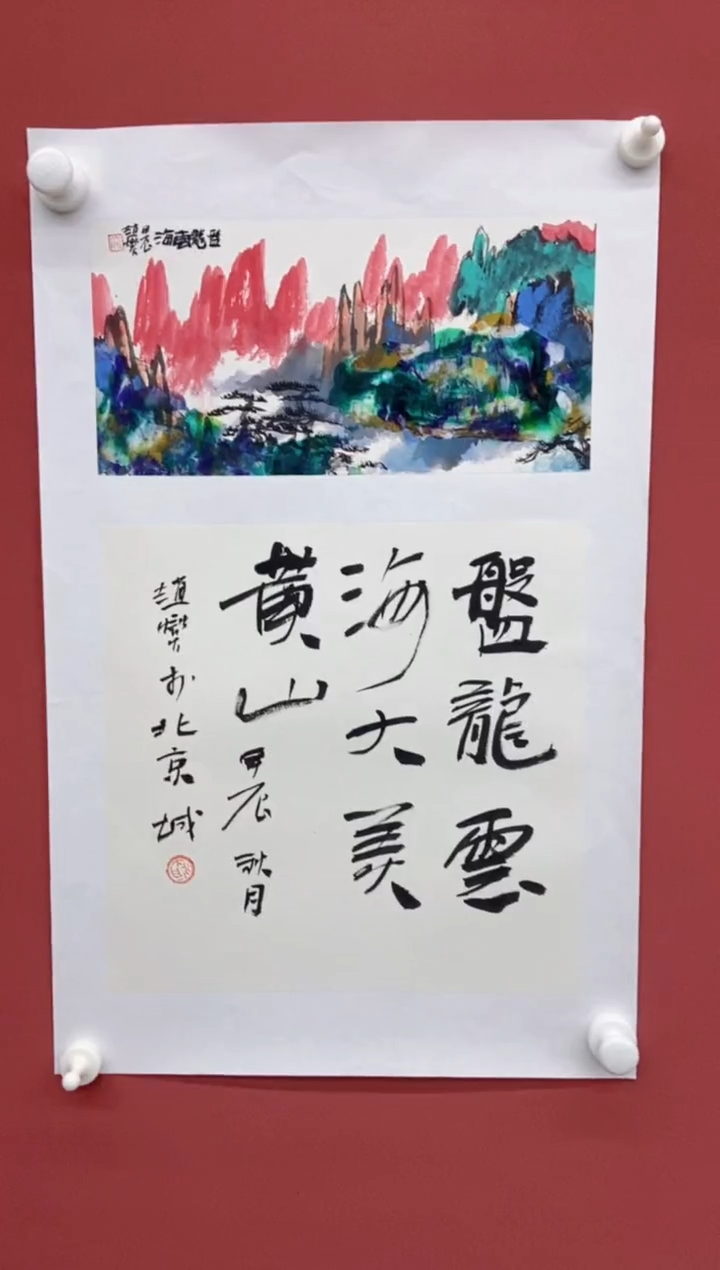 盤龍雲海
甲辰
趙
盤龍雲
海大美
黄山甲辰秋月
趙燮於北京城